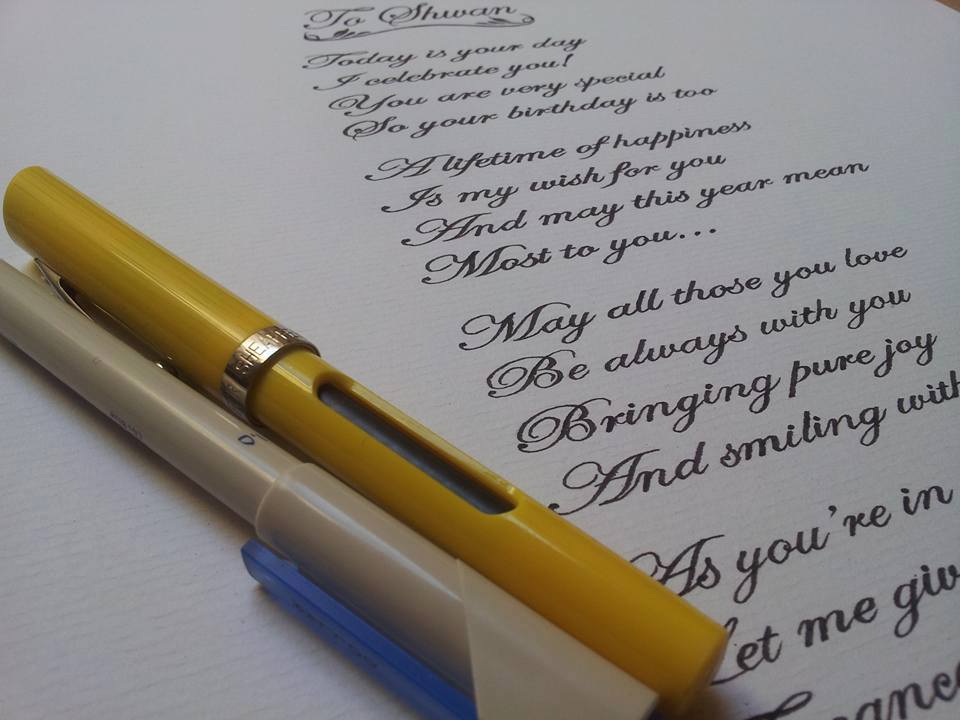 To Shwan
Today is your day
I celebrate you!
You are very special
So your birthday is too
A lifetime of happiness
Is my wish for you
And may this year mean
Most to you...
May all those you love
Be always with you
Bringing pure joy
And smiling with
As you're in
Let me giv
SHEAFFE